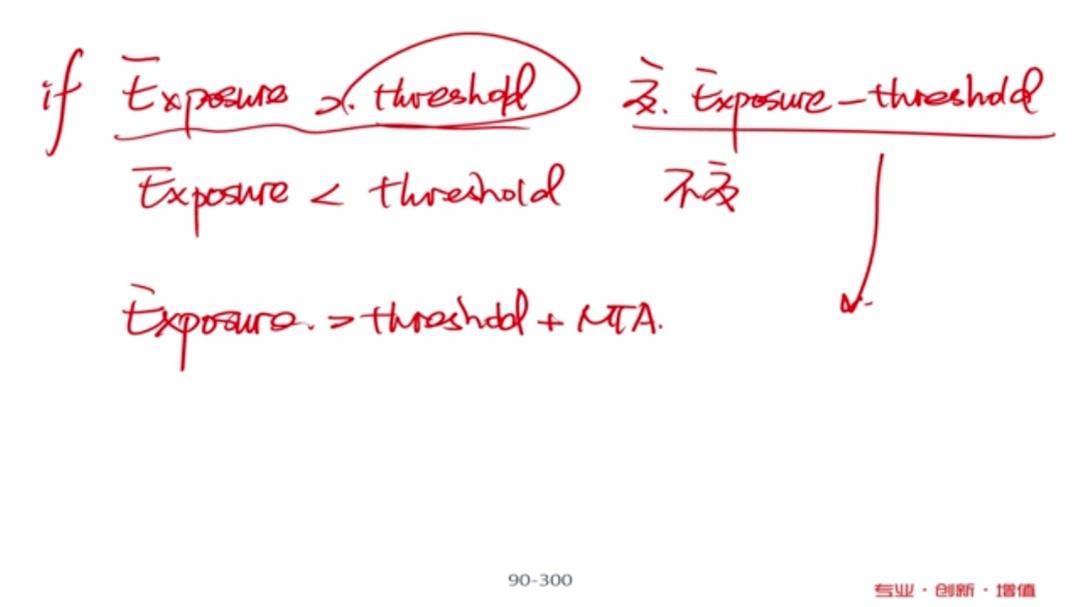 if Exposure > threshold 交. Exposure - threshold
Exposure < threshold 不交
Exposure > threshold + MTA.
90-300
专业·创新·增值